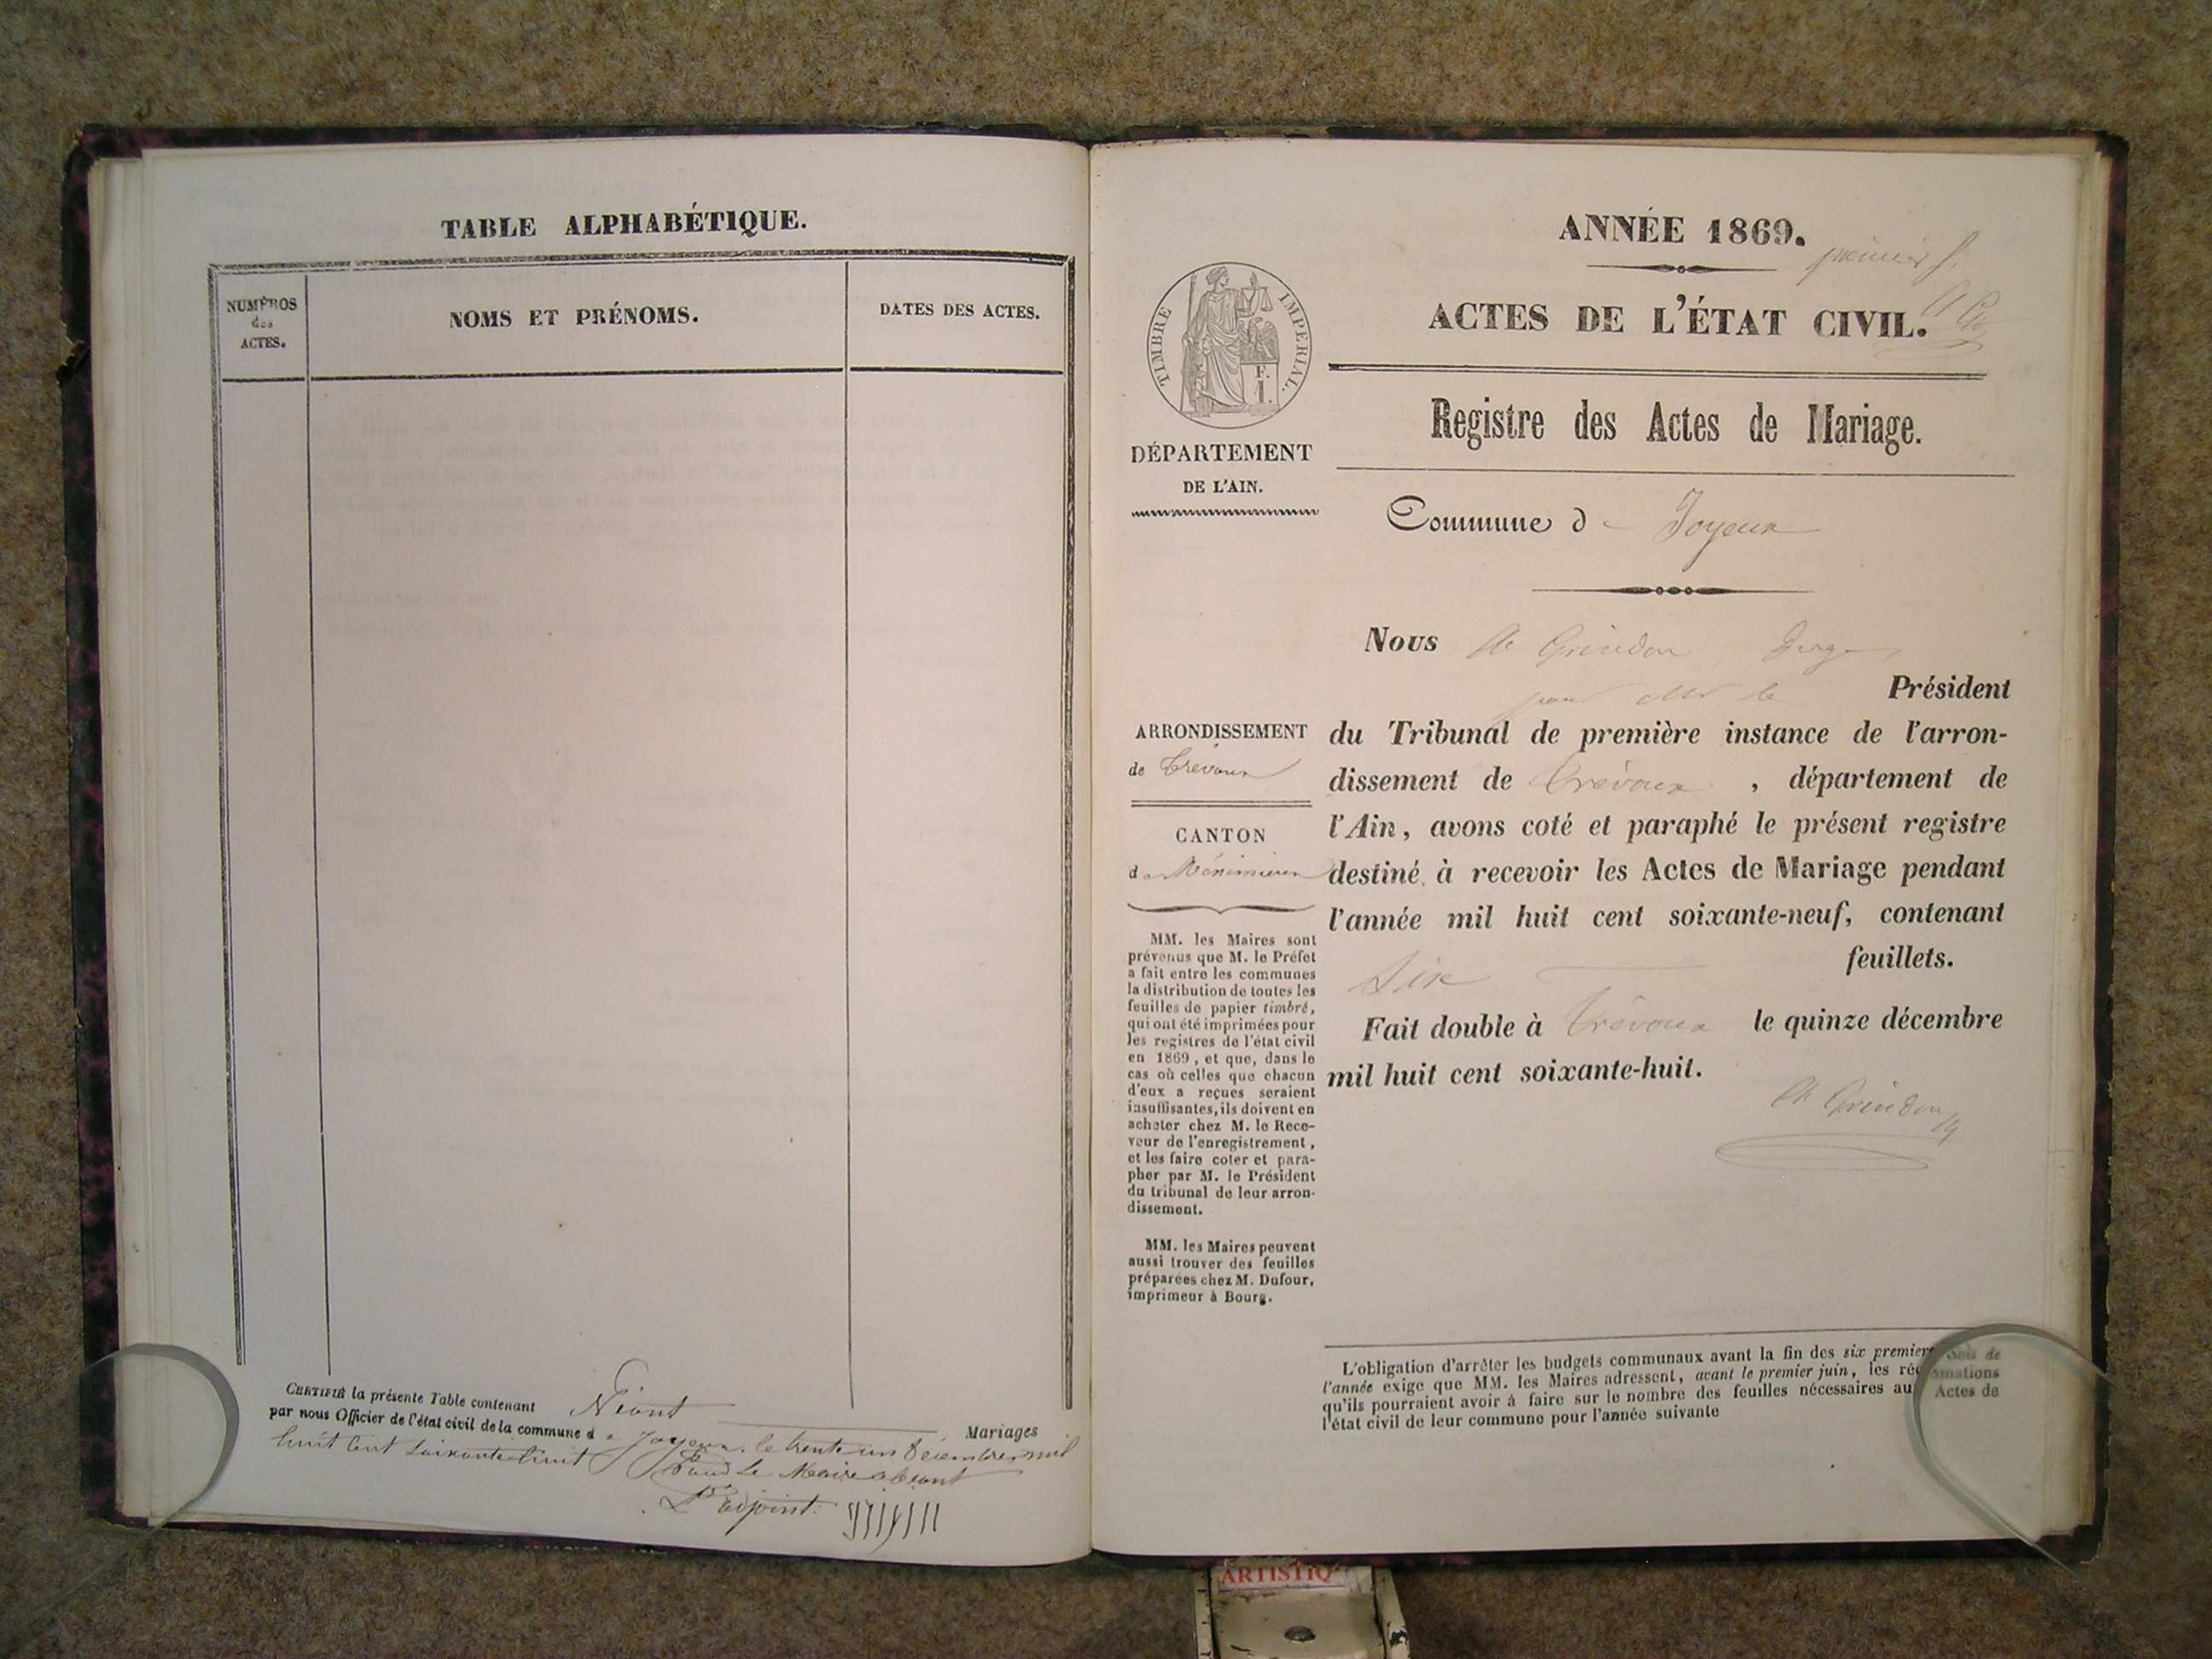 TABLE ALPHABÉTIQUE.
NUMÉROS
des
ACTES.
NOMS ET PRÉNOMS.
DATES DES ACTES.
CERTIFIÉ la présente Table contenant Néant Mariages
par nous Officier de l'état civil de la commune de Joyeux, le trente un Décembre mil
huit Cent Soixante huit
Pour Le Maire absent
L'adjoint:
ANNÉE 1869.
premier f.
ACTES DE L'ÉTAT CIVIL.
TIMBRE IMPERIAL.
F.
1.
Registre des Actes de Mariage.
DÉPARTEMENT
DE L'AIN.
Commune de Joyeux
Nous Ch Grindon, Juge,
pour Mr le Président
ARRONDISSEMENT
de Trévoux
CANTON
de Méximieux
MM. les Maires sont
prévenus que M. le Préfet
a fait entre les communes
la distribution de toutes les
feuilles de papier timbré,
qui ont été imprimées pour
les registres de l'état civil
en 1869, et que, dans le
cas où celles que chacun
d'eux a reçues seraient
insuffisantes, ils doivent en
acheter chez M. le Rece-
veur de l'enregistrement,
et les faire coter et para-
pher par M. le Président
du tribunal de leur arron-
dissement.
MM. les Maires peuvent
aussi trouver des feuilles
préparées chez M. Dufour,
imprimeur à Bourg.
du Tribunal de première instance de l'arron-
dissement de Trévoux, département de
l'Ain, avons coté et paraphé le présent registre
destiné à recevoir les Actes de Mariage pendant
l'année mil huit cent soixante-neuf, contenant
Six feuillets.
Fait double à Trévoux le quinze décembre
mil huit cent soixante-huit.
Ch Grindon
L'obligation d'arrêter les budgets communaux avant la fin des six premiers mois de
l'année exige que MM. les Maires adressent, avant le premier juin, les réclamations
qu'ils pourraient avoir à faire sur le nombre des feuilles nécessaires aux Actes de
l'état civil de leur commune pour l'année suivante
ARTISTIQ